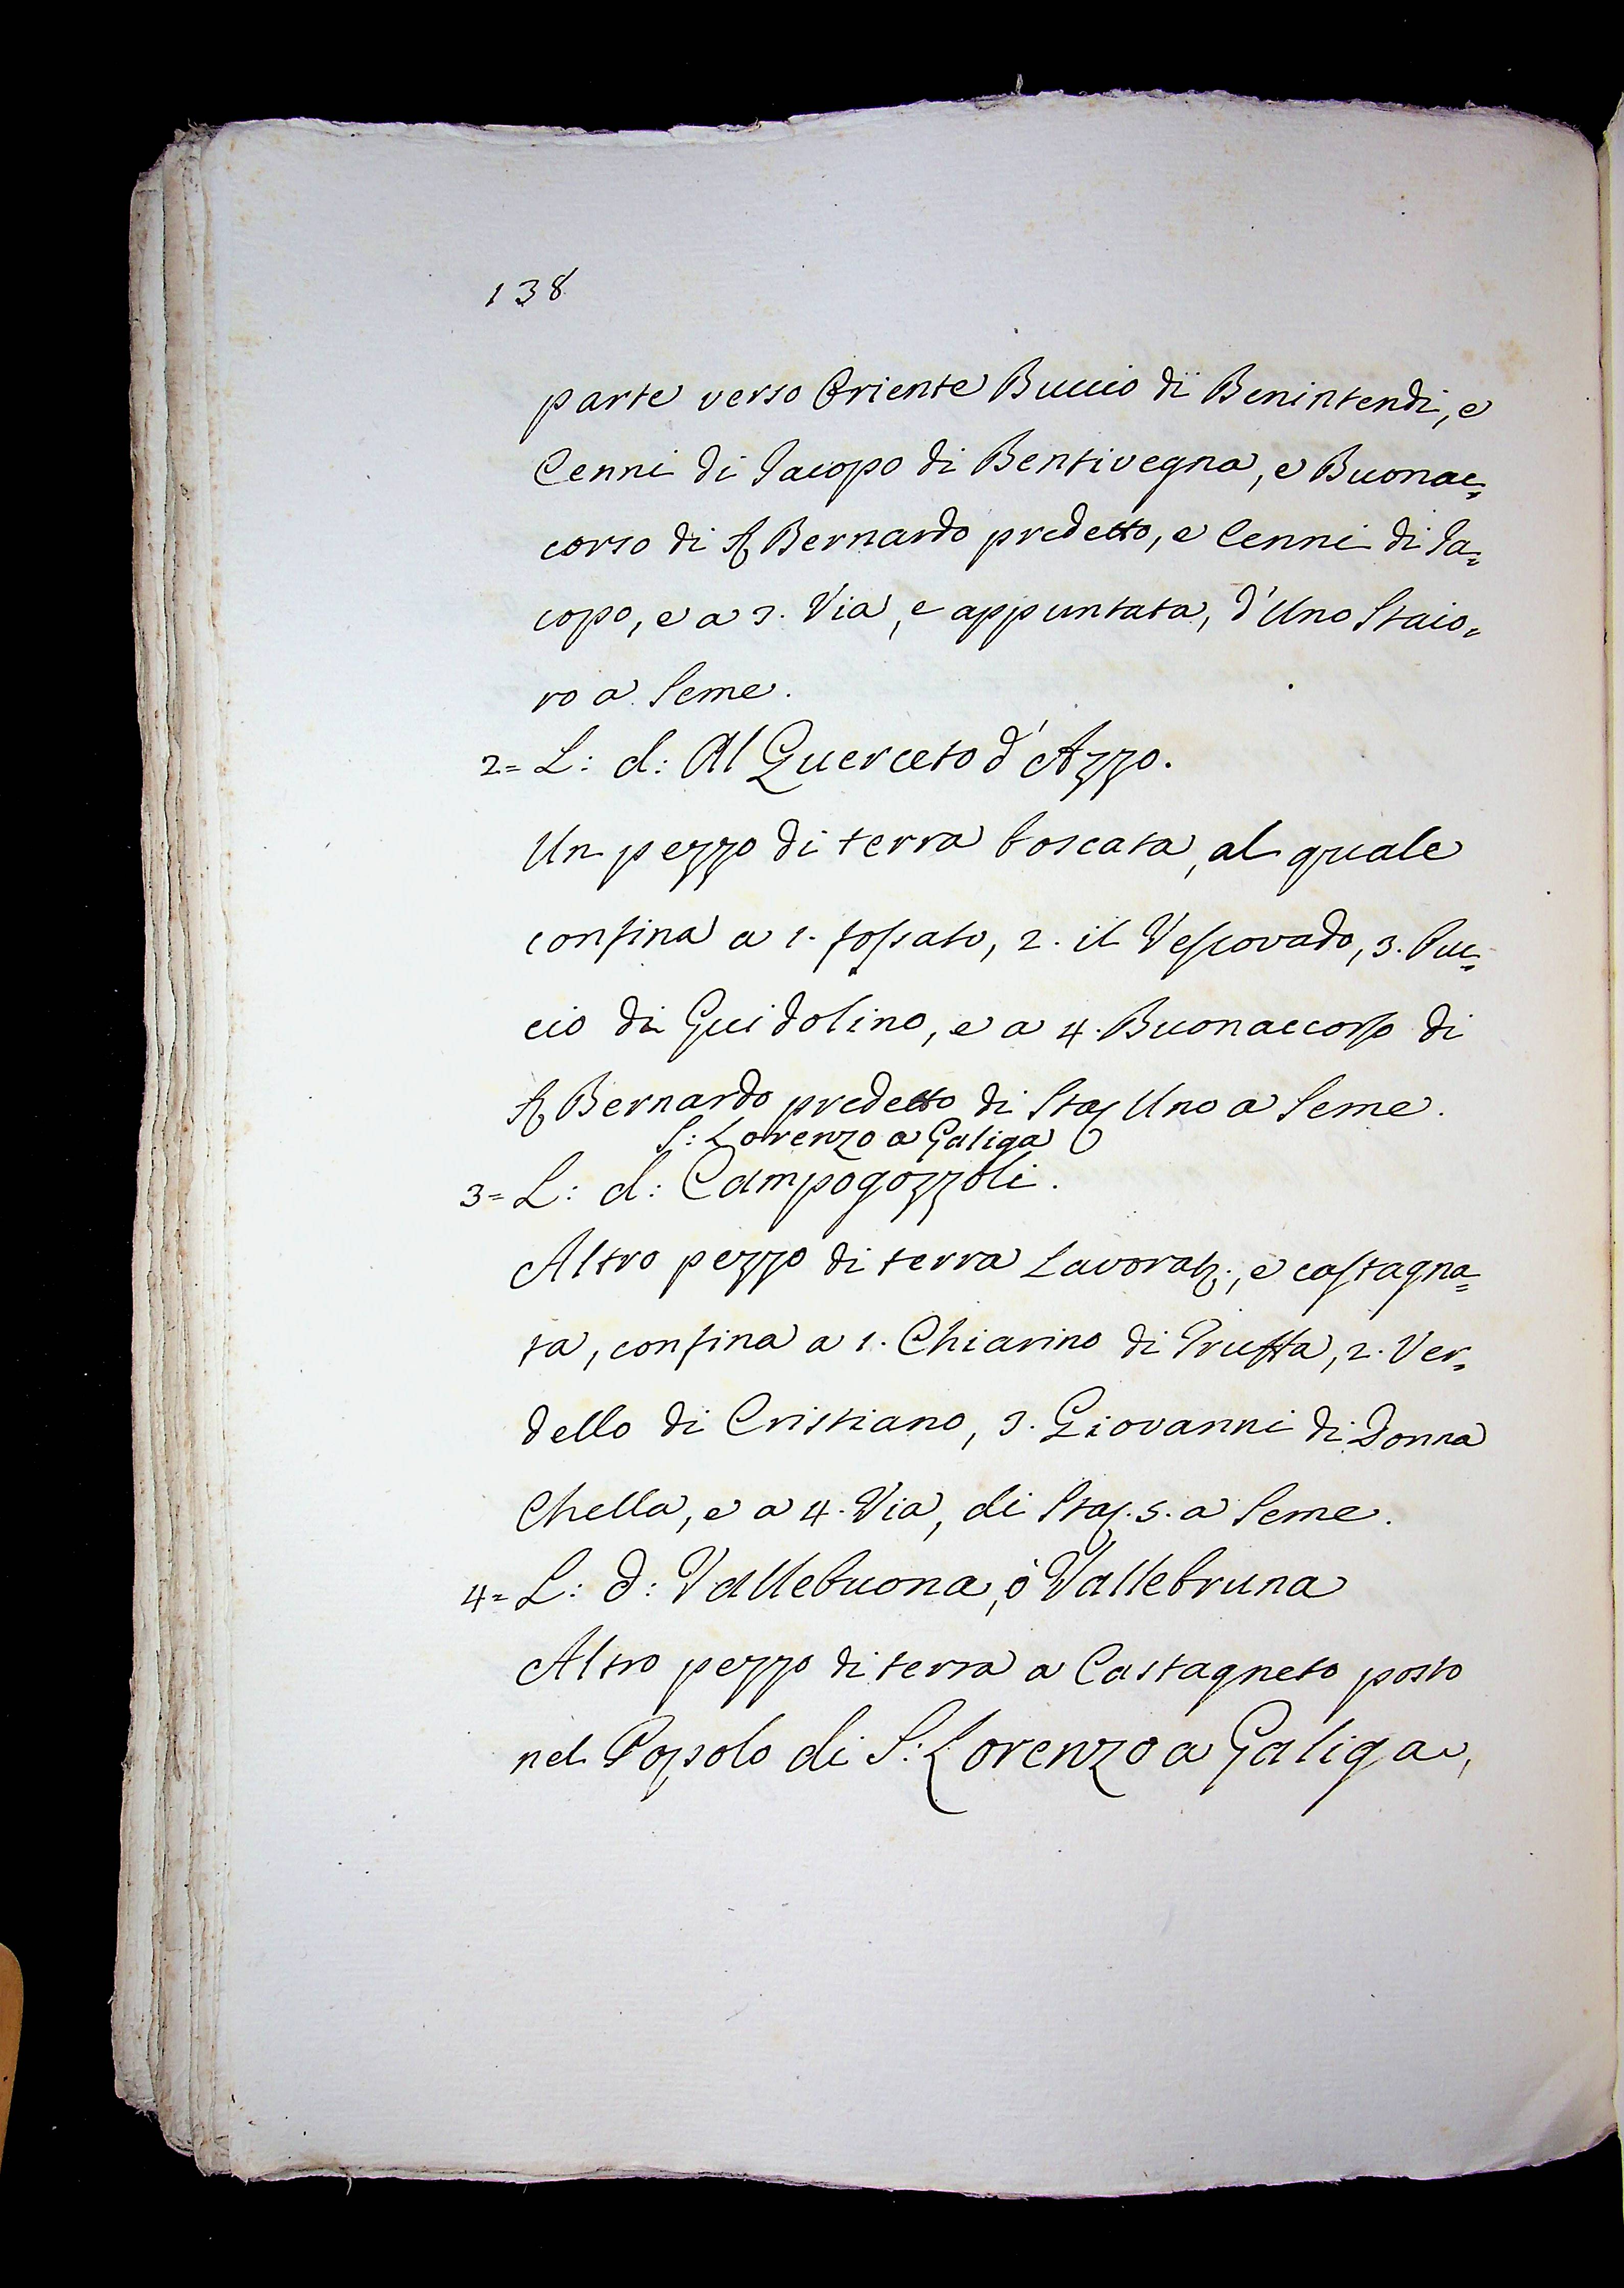 138
parte verso Oriente Buccio di Benintendi, e
Cenni di Jacopo di Bentivegna, e Buonac=
corso di Ser Bernardo predetto, e Cenni di Ja=
copo, e a 3. Via, e appuntata, d'Uno Staio=
ro a Seme.
2= L: d: Al Querceto d'Azzo.
Un pezzo di terra boscata, al quale
confina a 1. fossato, 2. il Vescovado, 3. Puc=
cio di Guidolino, e a 4. Buonaccorso di
Ser Bernardo predetto di Staj Uno a Seme.
S: Lorenzo a Galiga
3= L: d: Campogozzoli.
Altro pezzo di terra Lavorat:, e castagna=
ta, confina a 1. Chiarino di Truffa, 2. Ver=
dello di Cristiano, 3. Giovanni di Donna
Chella, e a 4. Via, di Staj. 5. a Seme.
4= L: d: Vallebuona, ò Vallebruna
Altro pezzo di terra a Castagneto posto
nel Popolo di S: Lorenzo a Galiga,